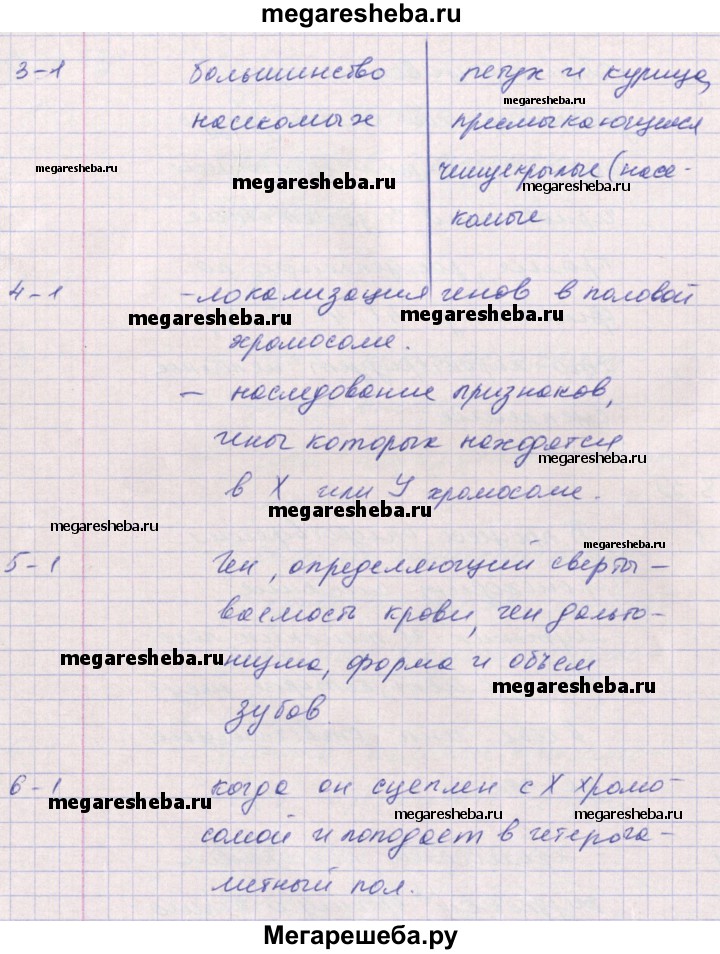 megaresheba.ru
3-1 большинство насекомых
петух и курица,
megaresheba.ru
пресмыкающиеся
megaresheba.ru
чешуекрылые (насе-
megaresheba.ru
megaresheba.ru
комые
4-1 - локализация генов в половой
megaresheba.ru
megaresheba.ru
хромосоме.
- наследование признаков,
гены которых находятся
megaresheba.ru
в X или У хромосоме.
megaresheba.ru
megaresheba.ru
megaresheba.ru
5-1 Ген, определяющий сверты-
ваемость крови, ген дальто-
megaresheba.ru
низма, форма и объем
megaresheba.ru
зубов.
6-1 когда он сцеплен с X хромо-
megaresheba.ru
megaresheba.ru
megaresheba.ru
сомой и поподает в гетерога-
метный пол.
Мегарешеба.ру